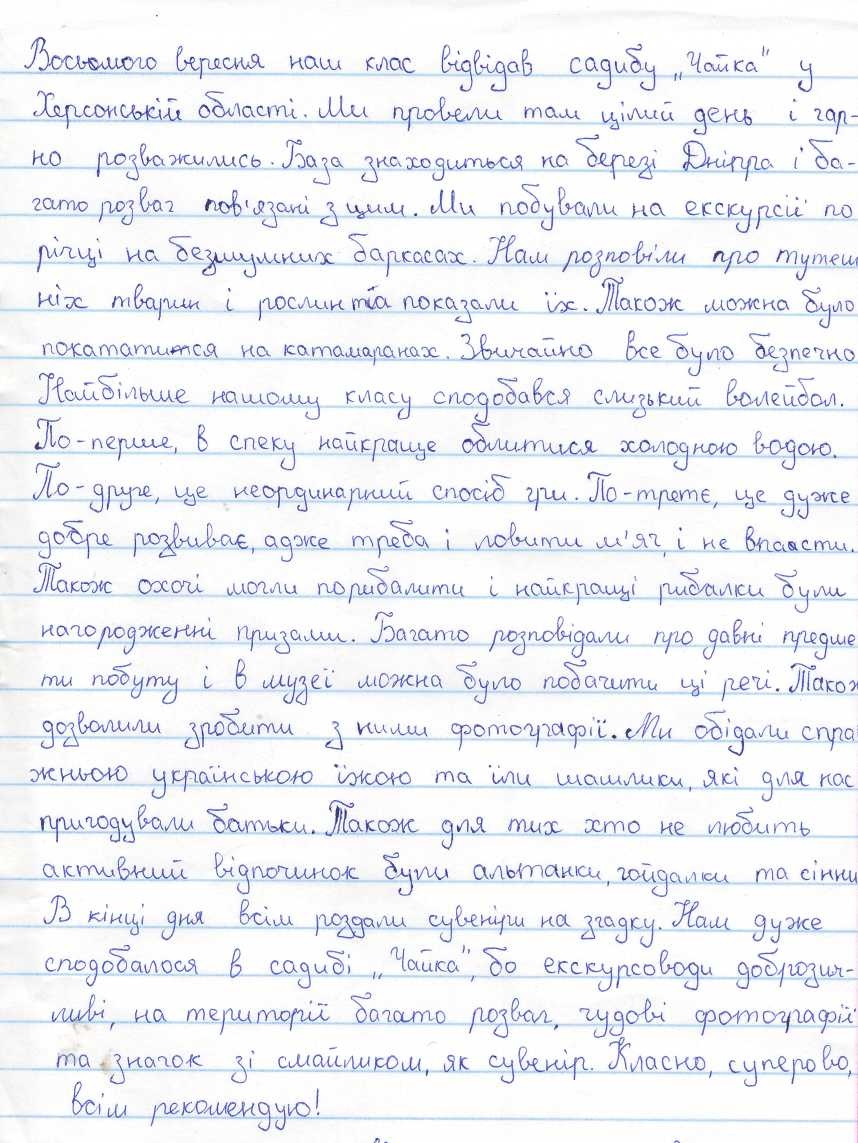 Восьмого вересня наш клас відвідав садибу „Чайка" у
Херсонській області. Ми провели там цілий день і гар-
но розважились. База знаходиться на березі Дніпра і ба-
гато розваг пов'язані з цим. Ми побували на екскурсії по
річці на безшумних баркасах. Нам розповіли про тутеш
ніх тварин і рослин та показали їх. Також можна було
покататися на катамаранах. Звичайно все було безпечно
Найбільше нашому класу сподобався слизький волейбол.
По-перше, в спеку найкраще облитися холодною водою.
По-друге, це неординарний спосіб гри. По-третє, це дуже
добре розвиває, адже треба і ловити м'яч, і не впасти.
Також охочі могли порибалити і найкращі рибалки були
нагородженні призами. Багато розповідали про давні предме
ти побуту і в музеї можна було побачити ці речі. Також
дозволили зробити з ними фотографії. Ми обідали спра
жньою українською їжою та їли шашлики, які для нас
пригодували батьки. Також для тих хто не любить
активний відпочинок були альтанки, гойдалки та сінни
В кінці дня всім роздали сувеніри на згадку. Нам дуже
сподобалося в садибі „Чайка", бо екскурсоводи доброзич-
ливі, на території багато розваг, чудові фотографії
та значок зі смайликом, як сувенір. Класно, суперово,
всім рекомендую!